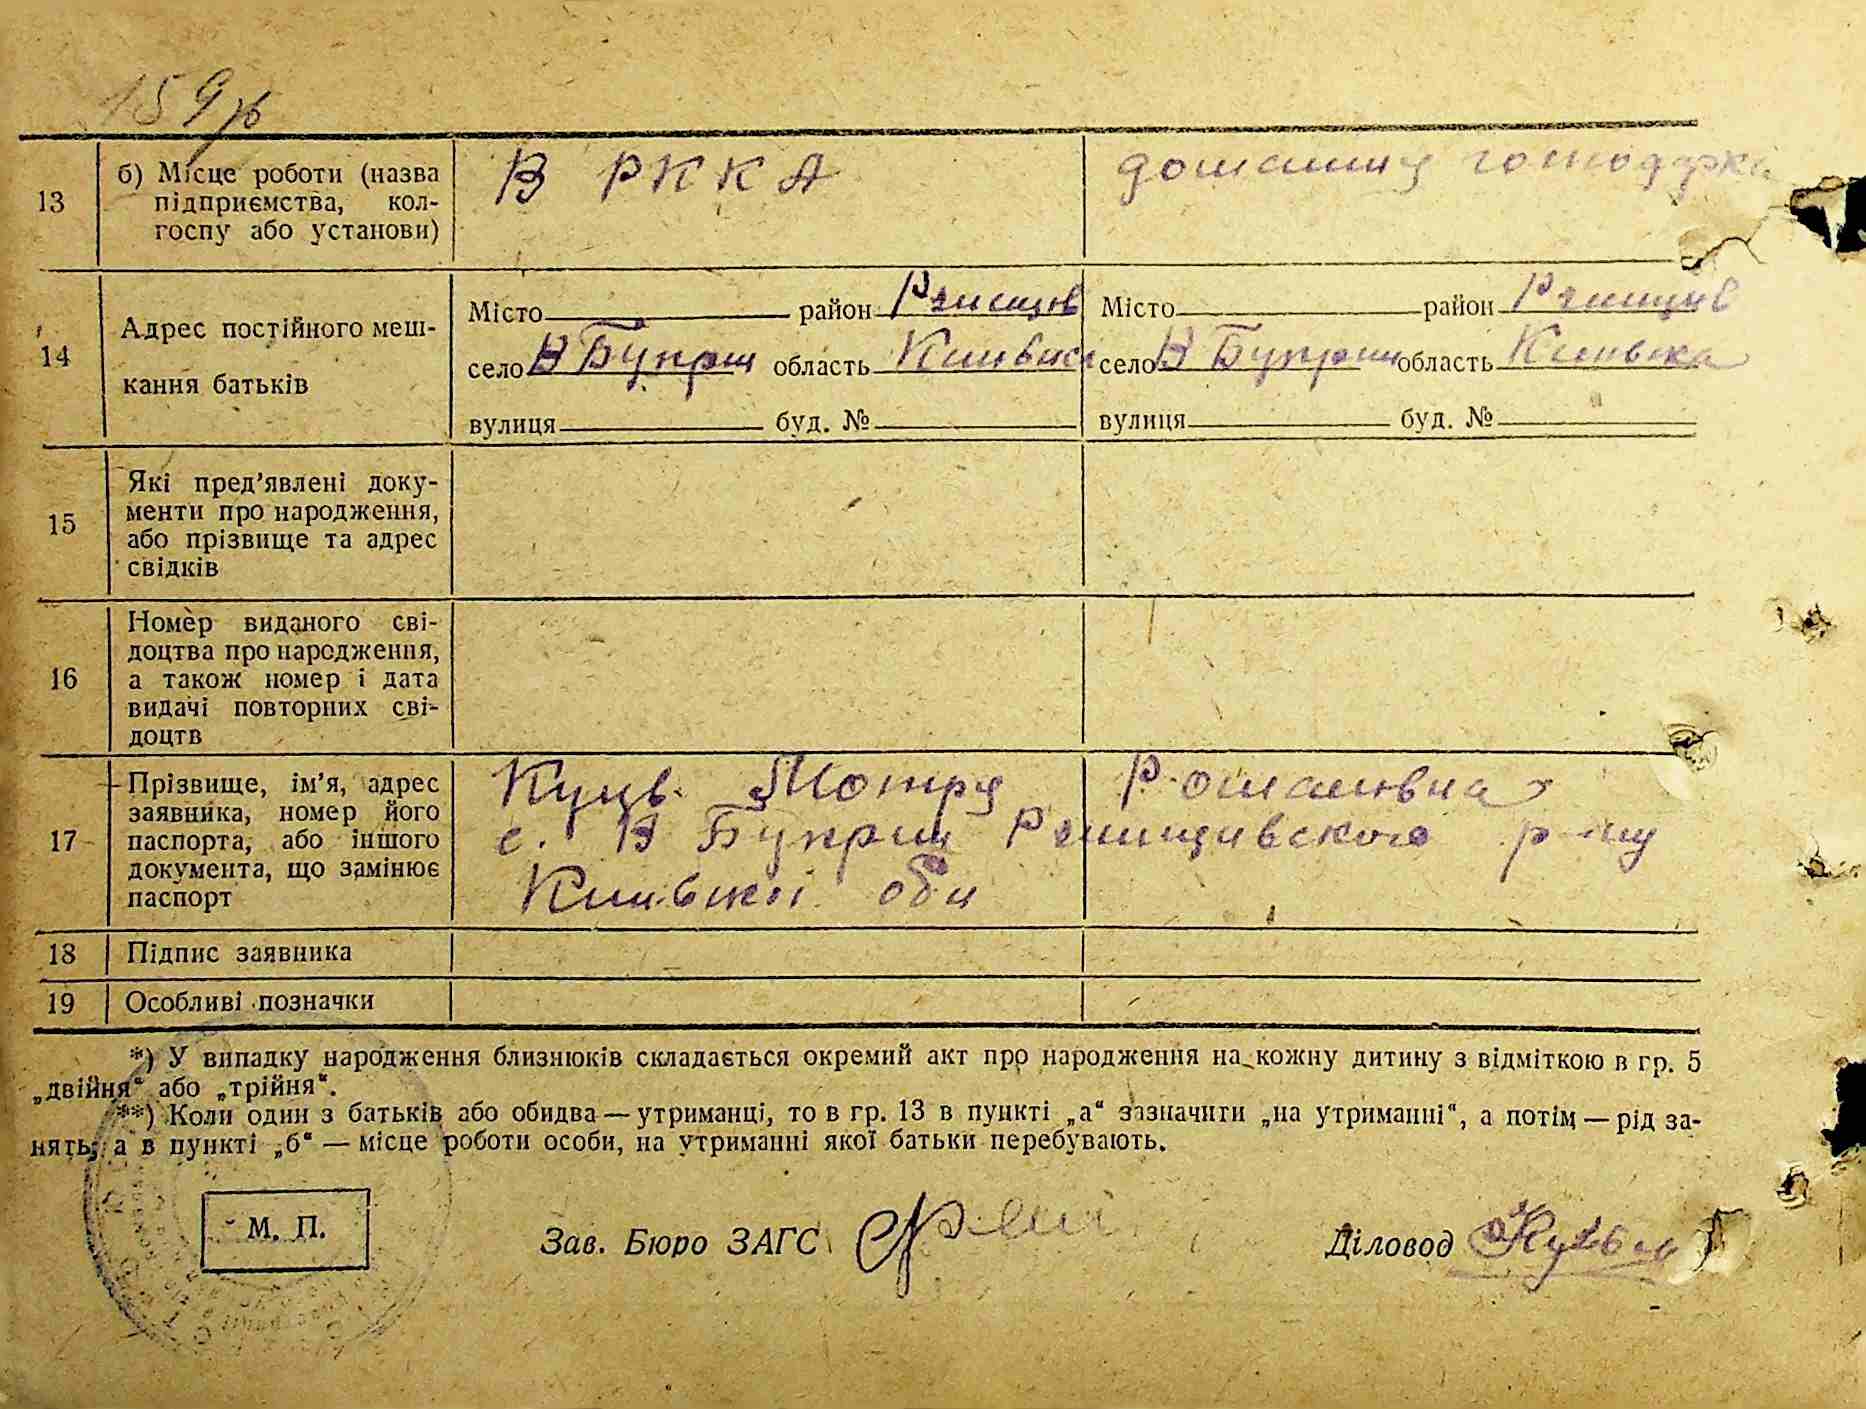 159
13 б) Місце роботи (назва підприємства, кол-
госпу або установи)
В РККА
домашня господарка
14 Адрес постійного меш-
кання батьків
Місто район Ржищів
село В Букрин область Київська
вулиця буд. №
Місто район Ржищів
село В Букрин область Київська
вулиця буд. №
15 Які пред’явлені доку-
менти про народження,
або прізвище та адрес
свідків
16 Номер виданого сві-
доцтва про народження,
а також номер і дата
видачі повторних сві-
доцтв
17 Прізвище, ім’я, адрес
заявника, номер його
паспорта, або іншого
документа, що замінює
паспорт
Мотря Романівна
с. В Букрин Ржищівского р-ну
Київскої обл
18 Підпис заявника
19 Особливі позначки
*) У випадку народження близнюків складається окремий акт про народження на кожну дитину з відміткою в гр. 5
„двійня“ або „трійня“.
**) Коли один з батьків або обидва — утриманці, то в гр. 13 в пункті „а“ зазначити „на утриманні“, а потім — рід за-
нять, а в пункті „б“ — місце роботи особи, на утриманні якої батьки перебувають.
М. П.
Зав. Бюро ЗАГС
Діловод